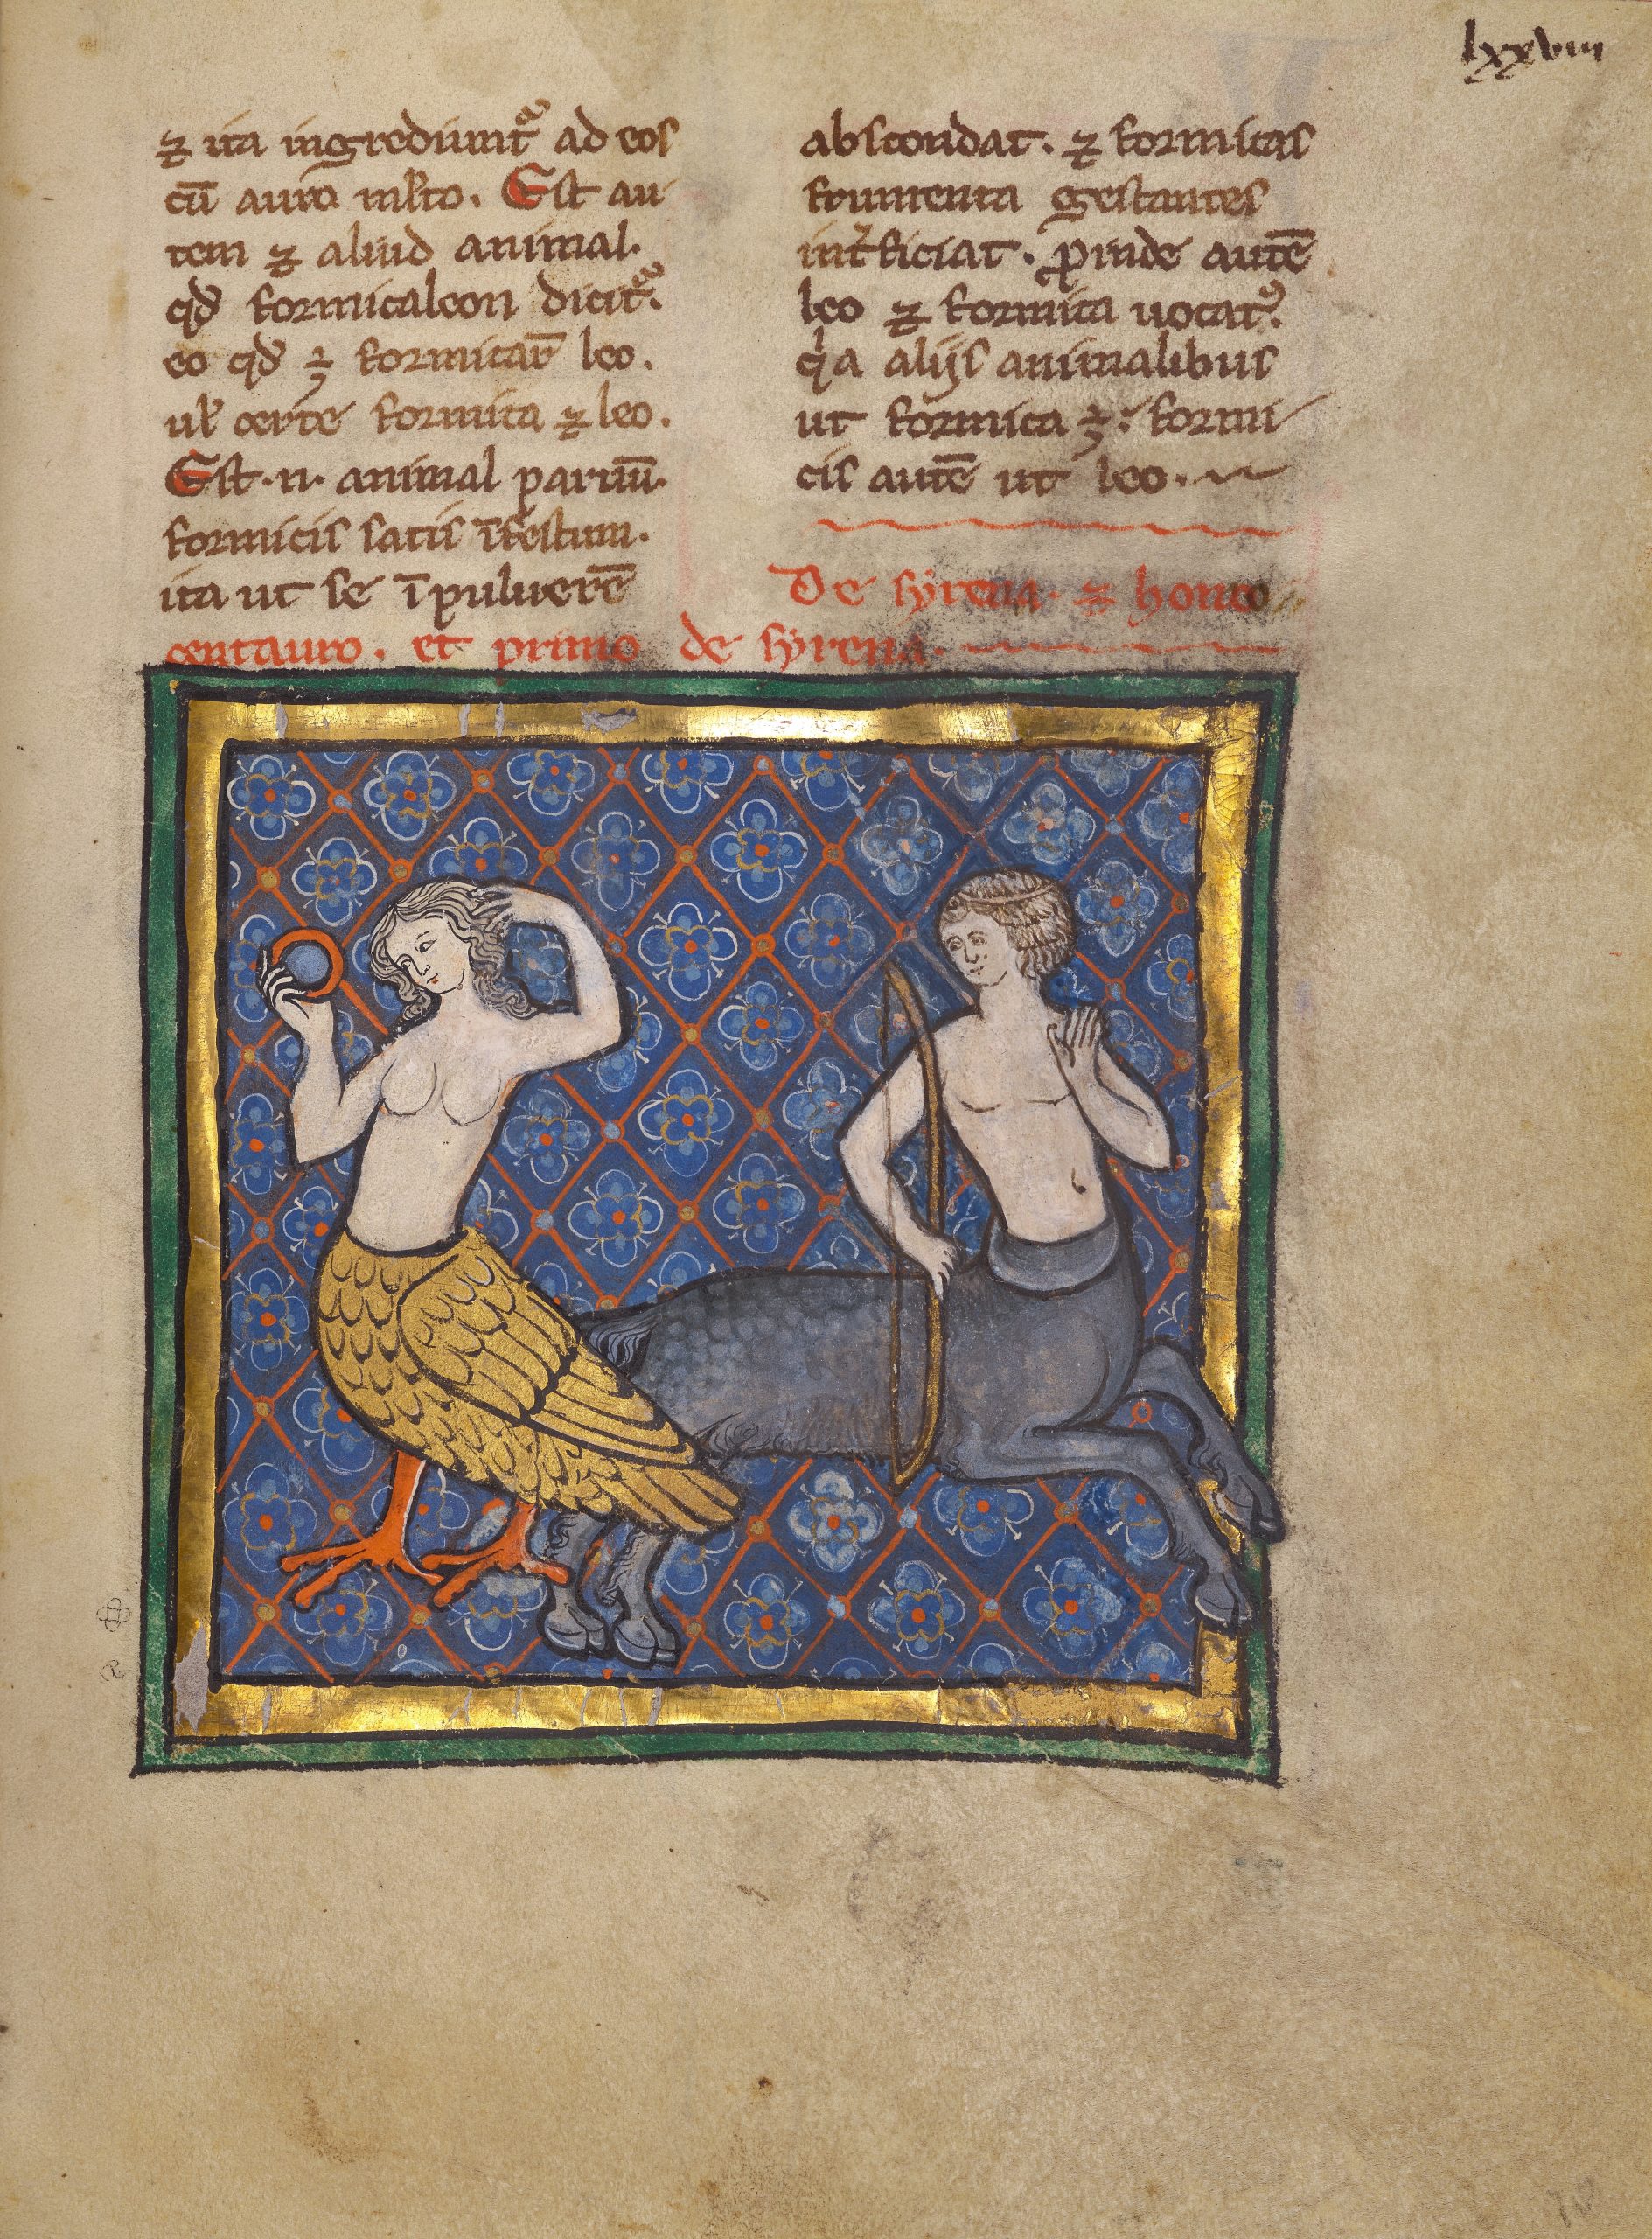 lxxviii
⁊ ita ingrediunt᷑ ad eos
cū auro ml̄to. Est au
tem ⁊ aliud animal.
qđ formicaleon dicit᷑.
eo qđ ÷ formicaꝝ leo.
ul̄ certe formica ⁊ leo.
Est .n. animal paruū.
formicis satis īfestum.
ita ut se ī puluerē
abscondat. ⁊ formicas
frumenta gestantes
int̄ficiat. ꝓinde autē
leo ⁊ formica uocat᷑.
qͥa alijs animalibus
ut formica ÷: formi
cis autē ut leo.
De syrena. ⁊ hono
centauro. et primo de syrena.